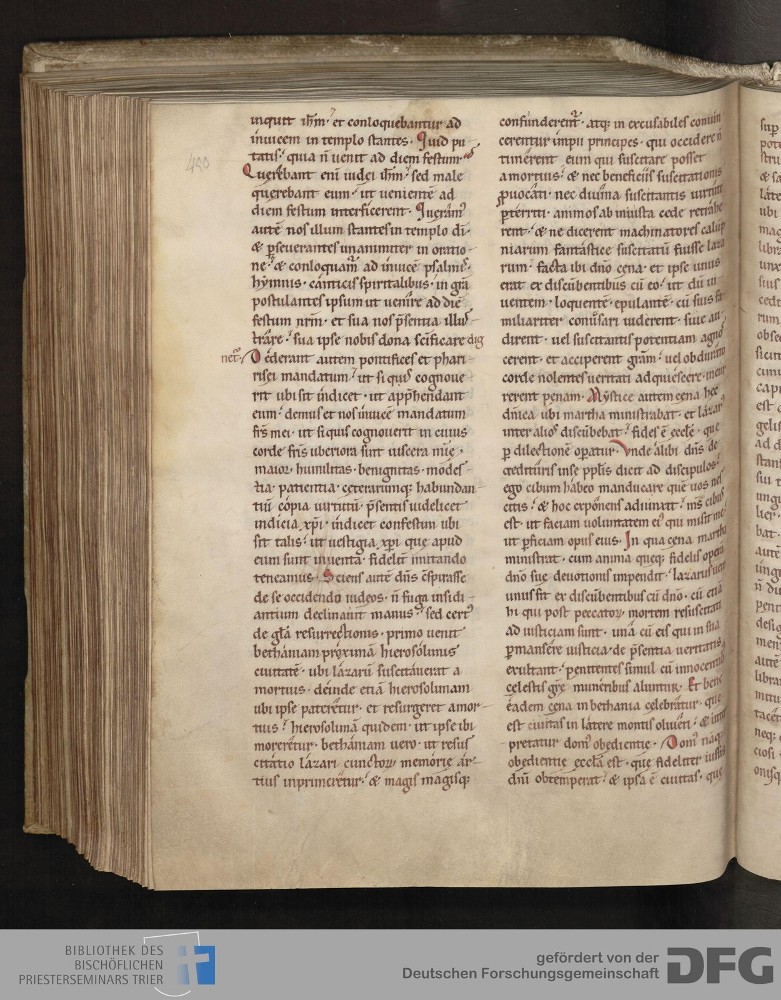 400
inquit ihm̄· et conloquebantur ad
inuicem in templo stantes· Quid pu
tatis? quia n̄ uenit ad diem festum?
Querebant eni iudei ihm̄· sed male
querebant eum· ut uenientē ad
diem festum interficerent· Queramꝰ
autē nos illum stantes in templo di
& ꝑseuerantes unanimiter in oratio
ne· & conloquam̄ ad inuicē psalmis·
hymnis· canticis spiritalibus· in gr̄a
postulantes ipsum ut uenire ad diē
festum nr̄m· et sua nos p̄sentia illus
trare· sua ipse nobis dona sc̄ificare dig
netᷣ· Dederant autem pontifices et phari
risei mandatum· ut si quis cognoue
rit ubi sit indicet· ut app̄hendant
eum· demus et nos inuicē mandatum
fr̄s mei· ut si quis cognouerit in cuius
corde fr̄is uberiora sunt uiscera mīe·
maior humilitas· benignitas· modes
tia· patientia· ceterarumq; habundan
tiū copia uirtutū· p̄sentis uidelicet
indicia xp̄i· indicet confestim ubi
sit talis· ut uestigia xp̄i que apud
eum sunt inuenta· fidelit̄ imitando
teneamus· Sciens autē dn̄s c̄spirasse
de se occidendo iudeos· n̄ fuga insidi
antium declinauit manus· sed certꝰ
de gl̄a resurrectionis· primo uenit
bethaniam proximā hierosolimis
ciuitatē· ubi lazarū suscitauerat a
mortuis· deinde etiā hierosolimam
ubi ipse pateretur· et resurgeret a mor
tuis· hierosolimā quidem· ut ipse ibi
moreretur· bethaniam uero· ut resus
citatio lazari cunctoꝝ memorie ar
tius inprimeretur· & magis magisq;
confunderentᷣ· atq; in excusabiles conuin
cerentur impii principes· qui occidere n̄
timerent eum qui suscitare posset
a mortuis· & nec beneficiis suscitationis
ꝓuocati· nec diuina suscitantis uirtute
ꝑterriti· animos ab iniusta cede retrahe
rent· & ne dicerent machinatores calūp
niarum fantastice suscitatū fuisse laza
rum· facta ibi dn̄o cena· et ipse unus
erat ex discūbentibus cū eo· ut dū ui
uentem· loquentē· epulantē· cū suis fa
miliariter conuersari uiderent· siue au
dirent· uel suscitantis potentiam agnos
cerent· et acciperent gr̄am· uel obdurato
corde nolentes ueritati adquiescere· incur
rerent penam· Mystice autem cena hec
dn̄ica ubi martha ministrabat· et lazarꝰ
inter alios discūbebat· fides ē ęcclę· que
ꝑ dilectionē oꝑatur· Unde alibi dn̄s de
credituris in se pp̄lis dicit ad discipulos·
ego cibum habeo manducare quē uos nes
citis· & hoc exponens adiunxit· m̄s cibus
est· ut faciam uoluntatem eiꝰ qui misit me·
ut ꝑficiam opus eius· In qua cena martha
ministrat· cum anima queq; fidelis opera
dn̄o sue deuotionis impendit· lazarus uero
unus fit ex discūbentibus cū dn̄o· cū etiā
hi qui post peccatoꝝ mortem resuscitati
ad iusticiam sunt· una cū eis qui in sua
ꝑmansere iusticia· de p̄sentia ueritatis
exultant· penitentes simul cū innocentibus
celestis gr̄e muneribus aluntur· Et bene
eadem cena in bethania celebratur· que
est ciuitas in latere montis oliueti· & inter
pretatur domꝰ obedientie· Domꝰ naq;
obedientie ecclā est· que fideliter iussis
dn̄i obtemperat· & ipsa ē ciuitas· que
BIBLIOTHEK DES
BISCHÖFLICHEN
PRIESTERSEMINARS TRIER
gefördert von der
Deutschen Forschungsgemeinschaft
DFG